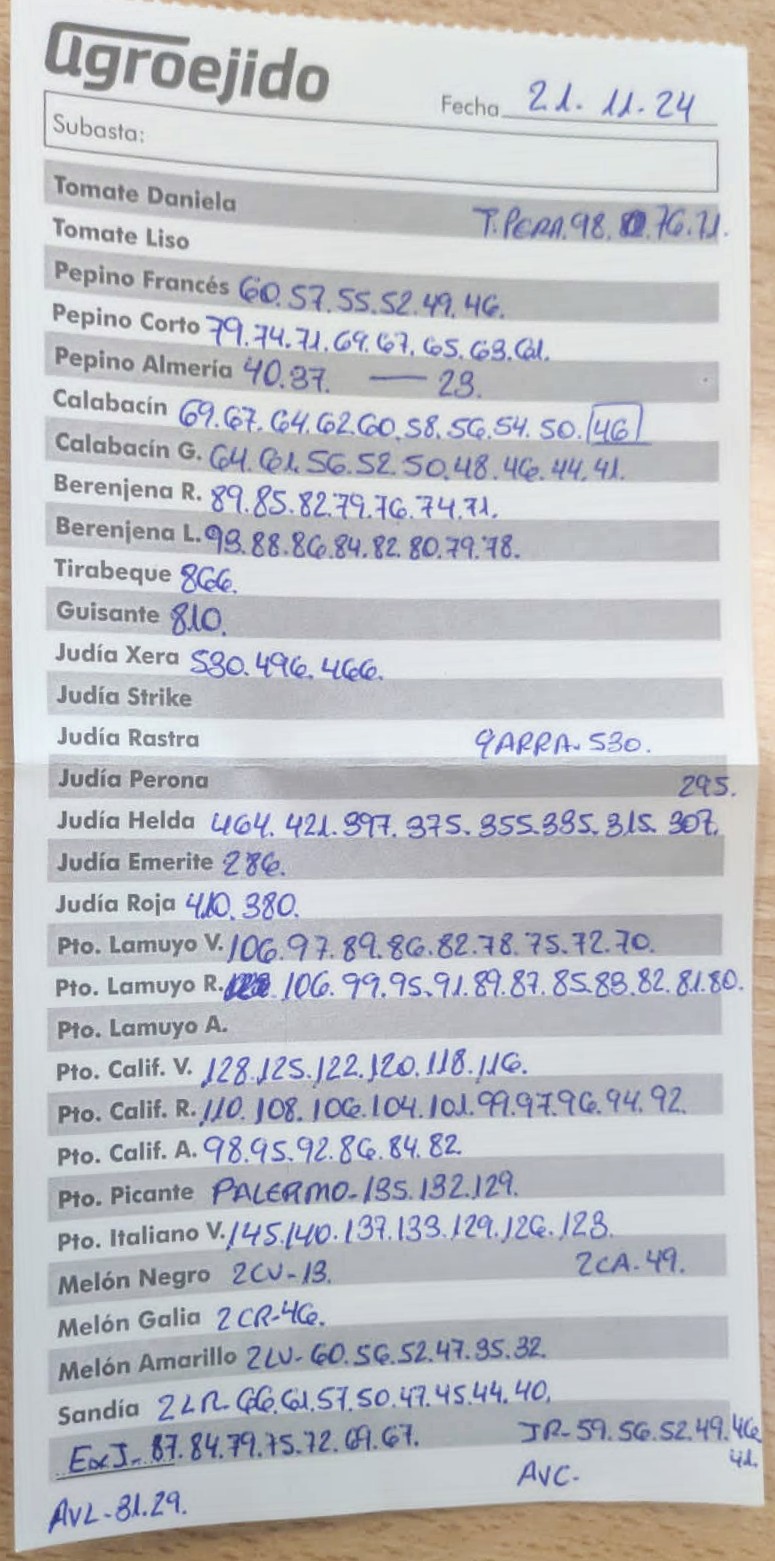 agroejido
Fecha 21.11.24
Subasta:
Tomate Daniela
T.PERA.98. .76.71.
Tomate Liso
Pepino Francés 60.57.55.52.49.46.
Pepino Corto 79.74.71.69.67.65.63.61.
Pepino Almería 40.37. — 23.
Calabacín 69.67.64.62.60.58.56.54.50.46
Calabacín G. 64.61.56.52.50.48.46.44.41.
Berenjena R. 89.85.82.79.76.74.71.
Berenjena L. 93.88.86.84.82.80.79.78.
Tirabeque 866.
Guisante 810.
Judía Xera 530.496.466.
Judía Strike
Judía Rastra GARRA.530.
Judía Perona 295.
Judía Helda 464.421.397.375.355.335.315.307.
Judía Emerite 286.
Judía Roja 410.380.
Pto. Lamuyo V. 106.97.89.86.82.78.75.72.70.
Pto. Lamuyo R. 106.99.95.91.89.87.85.83.82.81.80.
Pto. Lamuyo A.
Pto. Calif. V. 128.125.122.120.118.116.
Pto. Calif. R. 110.108.106.104.101.99.97.96.94.92.
Pto. Calif. A. 98.95.92.86.84.82.
Pto. Picante PALERMO-135.132.129.
Pto. Italiano V. 145.140.137.133.129.126.123.
Melón Negro 2CV-13. 2CA-49.
Melón Galia 2CR-46.
Melón Amarillo 2LV-60.56.52.47.35.32.
Sandía 2LR-66.61.57.50.47.45.44.40.
ExJ-87.84.79.75.72.69.67. JR-59.56.52.49.46
41.
AVL-31.29. AVC-